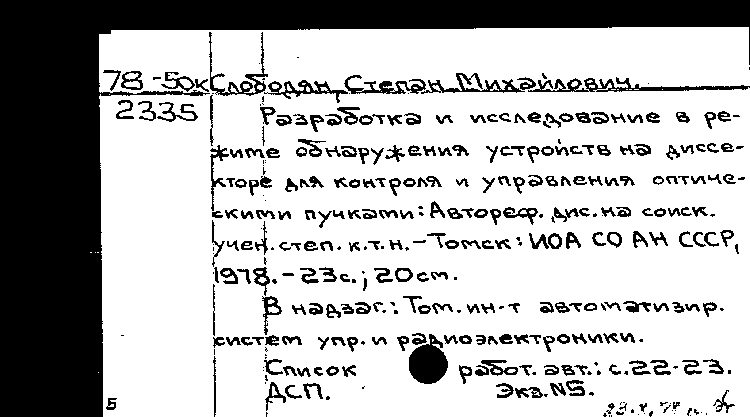 78-50к Слободян, Степан Михайлович.
2335 Разработка и исследование в ре-
жите обнаружения устройств на диссе-
кторе для контроля и управления оптиче-
скими пучками: Автореф. дис. на соиск.
учен. степ. к.т.н. - Томск: ИОА СО АН СССР,
1978. - 23с.; 20см.
В надзаг.: Том. ин-т автоматизир.
систем упр. и радиоэлектроники.
Список работ. авт.: с. 22-23.
ДСП. Экз. N5.
5